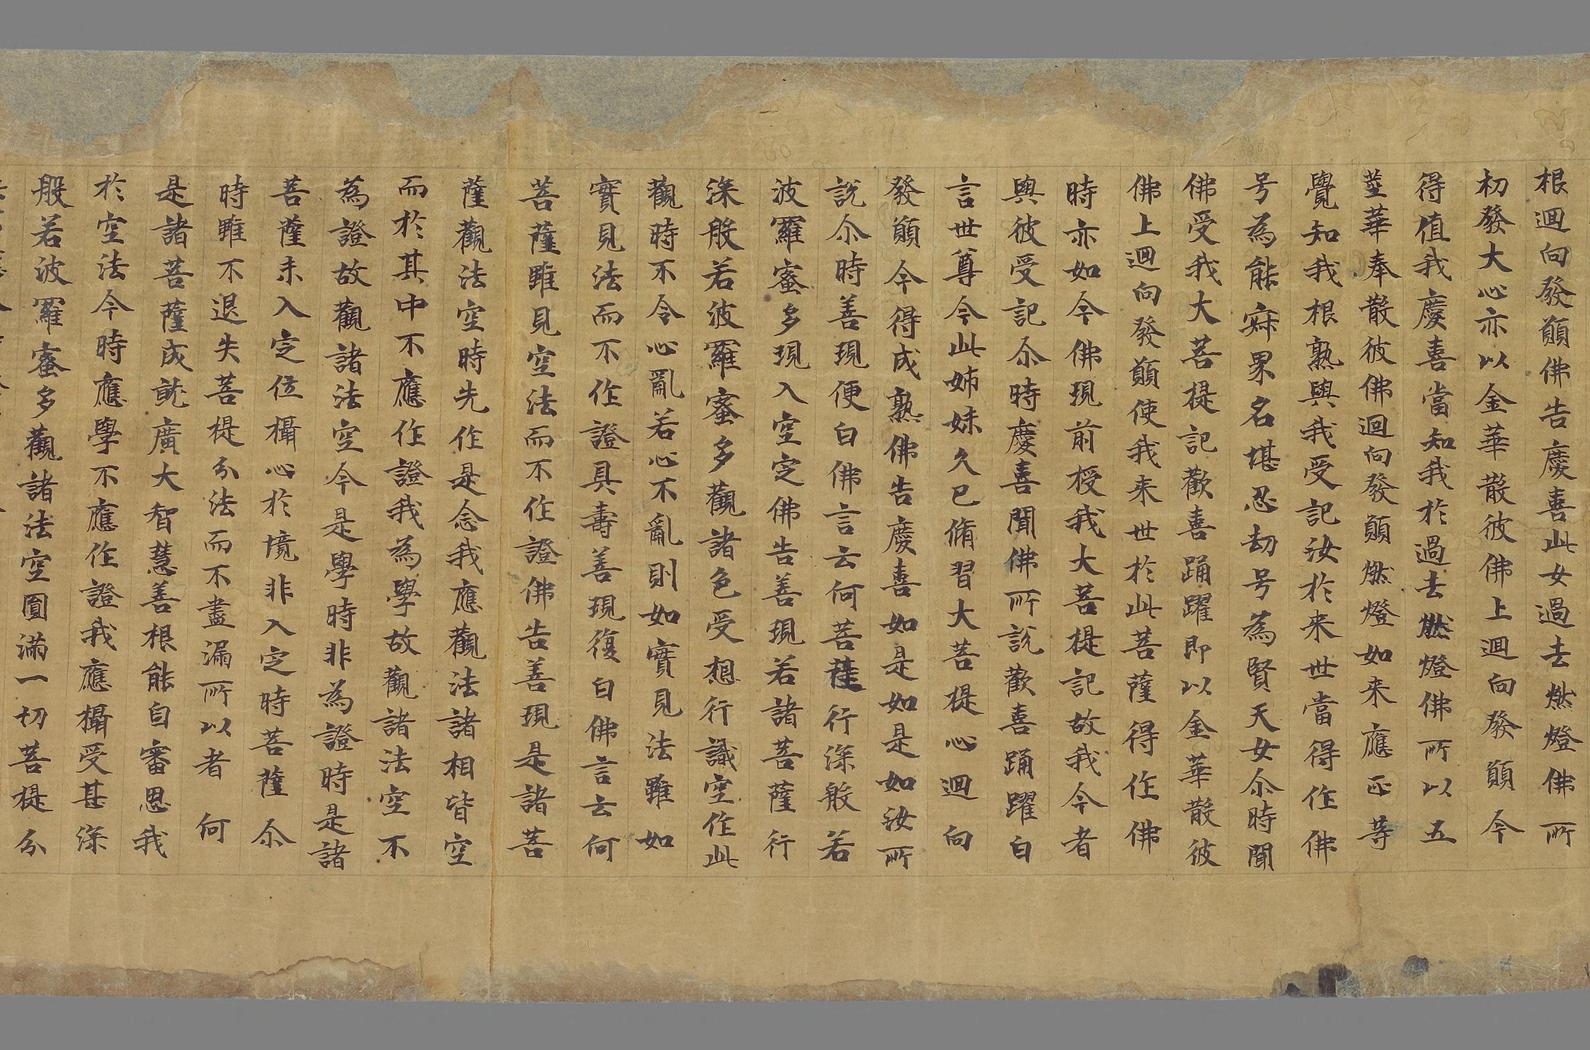 根迴向發願佛告慶喜此女過去燃燈佛所
初發大心亦以金華散彼佛上迴向發願今
得值我慶喜當知我於過去燃燈佛所以五
莖華奉散彼佛迴向發願燃燈如来應正等
覺知我根熟與我受記汝於来世當得作佛
号為能寂界名堪忍劫号為賢天女尒時聞
佛受我大菩提記歡喜踊躍即以金華散彼
佛上迴向發願使我来世於此菩薩得作佛
時亦如今佛現前授我大菩提記故我今者
與彼受記尒時慶喜聞佛所說歡喜踊躍白
言世尊今此姊妹久已脩習大菩提心迴向
發願今得成熟佛告慶喜如是如是如汝所
說尒時善現便白佛言云何菩薩行深般若
波羅蜜多現入空定佛告善現若諸菩薩行
深般若波羅蜜多觀諸色受想行識空作此
觀時不令心亂若心不亂則如實見法雖如
實見法而不作證具壽善現復白佛言云何
菩薩雖見空法而不作證佛告善現是諸菩
薩觀法空時先作是念我應觀法諸相皆空
而於其中不應作證我為學故觀諸法空不
為證故觀諸法空今是學時非為證時是諸
菩薩未入定位攝心於境非入定時菩薩尒
時雖不退失菩提分法而不盡漏所以者何
是諸菩薩成就廣大智慧善根能自審思我
於空法今時應學不應作證我應攝受甚深
般若波羅蜜多觀諸法空圓滿一切菩提分